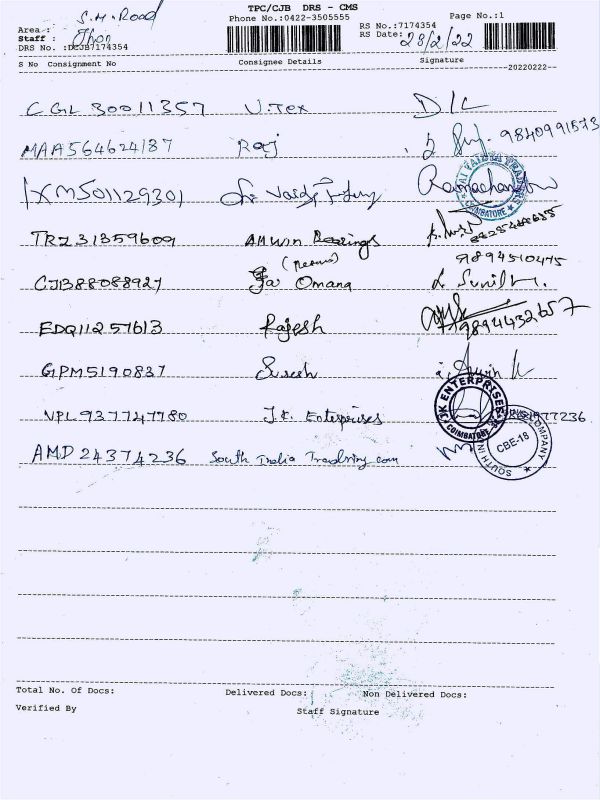 TPC/CJB DRS - CMS
S.H. Road
Phone No.:0422-3505555
RS No.:7174354
Page No.:1
Area :
Staff : Jhon
RS Date: 28/2/22
DRS No. :DCJB7174354
S No Consignment No Consignee Details Signature
20220222
CGL 30011357 U.Tex D/C
MAA564624187 Raj 9840991573
XM501129301 Ramachandran
COIMBATORE
TRZ31359609 Amwin Bearings
9894510475
CJB88088927 Omana Sunil
EDQ11257613 Rajesh 9894432657
GPM5190837 Suresh
VPL937747780 J.K. Enterprises
JK ENTERPRISES COIMBATORE
AMD 24374236 South India Tradning.com
SOUTH INDIA COMPANY CBE-18
Total No. Of Docs: Delivered Docs: Non Delivered Docs:
Verified By Staff Signature